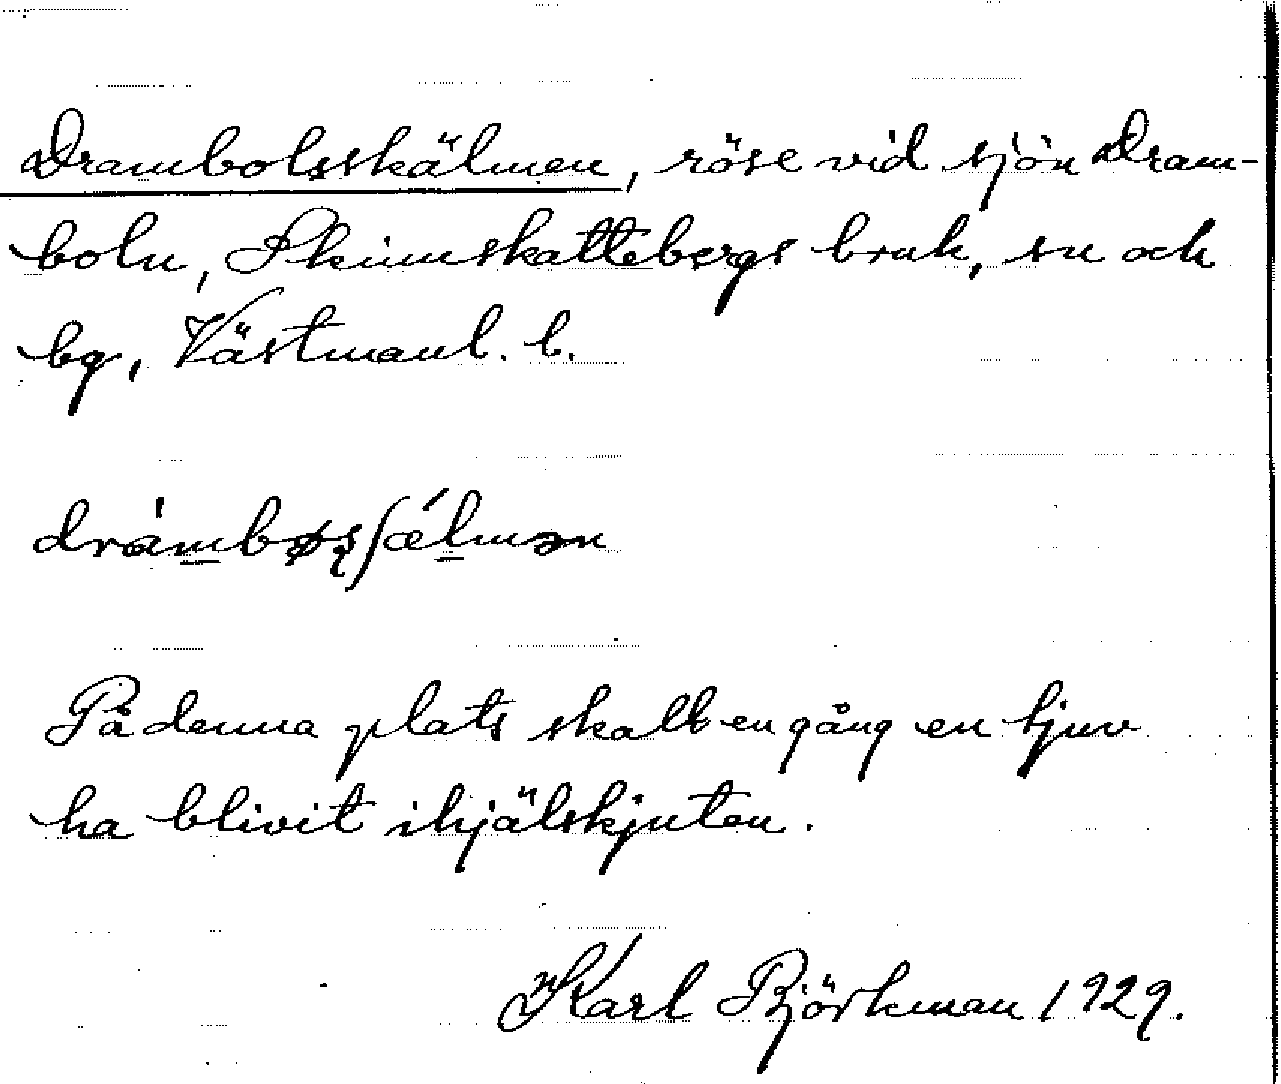 Drambolsskälmen, röse vid sjön Dram-
boln, Skinnskattebergs bruk, sn och
bg, Västmanl. l.
På denna plats skall en gång en tjuv
ha blivit ihjälskjuten.
Karl Björkman 1929.